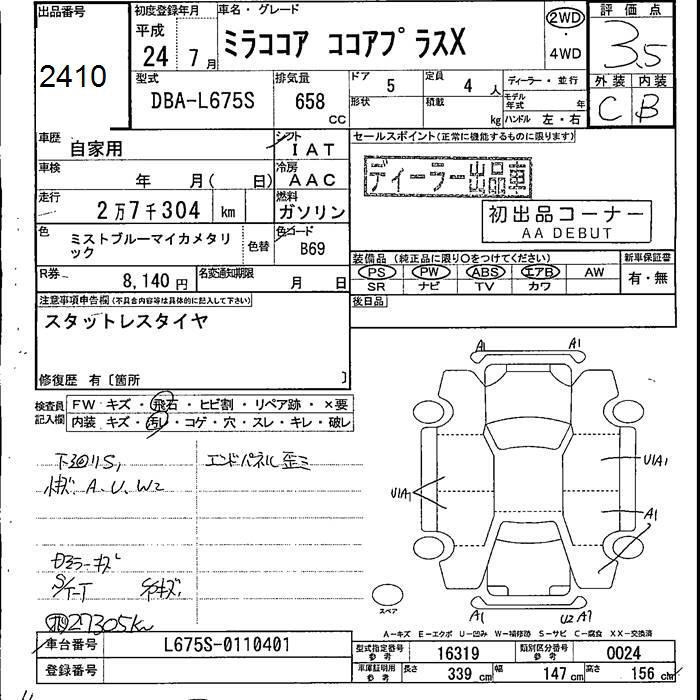 出品番号
2410
初度登録年月
平成
24 7月
車名・グレード
ミラココア ココアプラスX
2WD
・
4WD
評価点
3.5
外装 内装
C B
型式
DBA-L675S
排気量
658
CC
ドア
5
定員
4 人
ディーラー・並行
形状
積載
kg
モデル年式 年
ハンドル 左・右
車歴
自家用
シフト
IAT
車検
年 月( 日)
冷房
AAC
走行
2万7千304 km
燃料
ガソリン
色
ミストブルーマイカメタリック
色替
色コード
B69
R券
8,140円
名変通知期限
月 日
セールスポイント(正常に機能するものに限ります)
ディーラー出品車
初出品コーナー
AA DEBUT
装備品 (純正品に限り〇をつけてください)
新車保証書
PS PW ABS エアB AW
SR ナビ TV カワ
有・無
後日品
注意事項申告欄(不具合内容等は具体的に記入して下さい)
スタットレスタイヤ
修復歴 有〔箇所 〕
検査員記入欄
FW キズ・飛石・ヒビ割・リペア跡・×要
内装 キズ・汚レ・コゲ・穴・スレ・キレ・破レ
エンドパネル歪ミ
小キズ、A、U、W2
27305km
A1 A1
U1A1
U1A1
A1
A1 U2 A1
スペア
A-キズ E-エクボ U-凹み W-補修跡 S-サビ C-腐食 XX-交換済
車台番号
L675S-0110401
登録番号
型式指定番号
参考
16319
類別区分番号
参考
0024
車庫証明用
参考
長さ 339 cm
幅 147 cm
高さ 156 cm